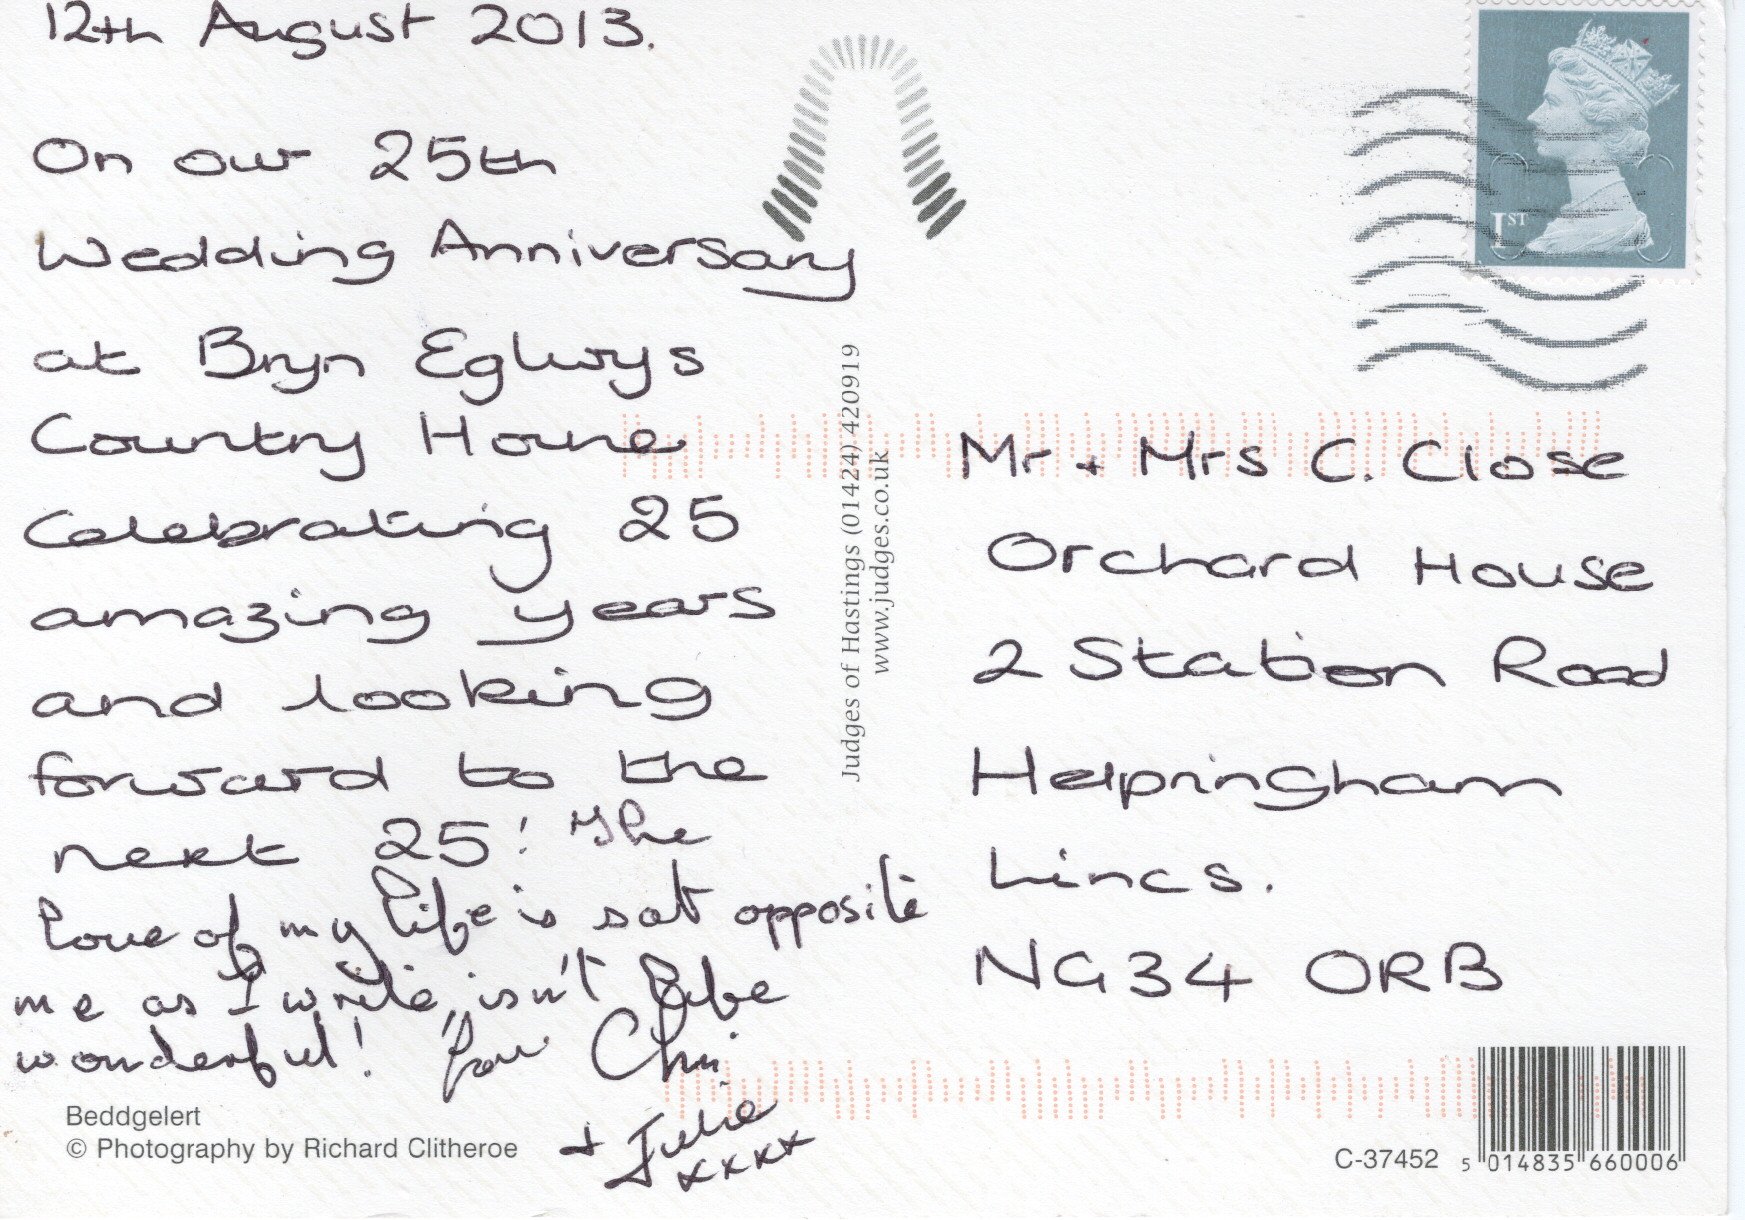 12th August 2013.
On our 25th
Wedding Anniversary
at Bryn Eglwys
Country House
Celebrating 25
amazing years
and looking
forward to the
next 25! The
love of my life is sat opposite
me as I write, isn't life
wonderful! love Chris
+ Julie
xxxx
Beddgelert
© Photography by Richard Clitheroe
Judges of Hastings (01424) 420919
www.judges.co.uk
1ST
Mr + Mrs C. Close
Orchard House
2 Station Road
Helpringham
Lincs.
NG34 ORB
C-37452
5 014835 660006